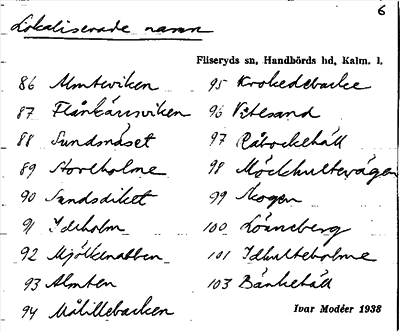 6
Lokaliserade namn
Fliseryds sn, Handbörds hd, Kalm. l.
86 Almteviken
87 Flånkärrsviken
88 Sundsnäset
89 Storeholme
90 Sundsdiket
91 Ideholm
92 Mjölkenabben
93 Almten
94 Målillebacken
95 Krokedebacke
96 Vitesand
97
98 Möckhultevägen
99 Skogen
100 Lönneberg
101 Idhulteholme
103 Bänketäll
Ivar Modéer 1938